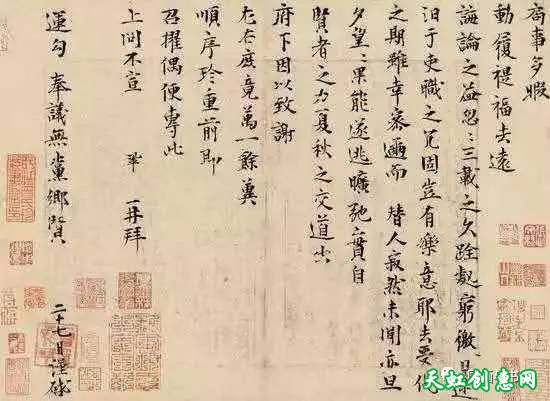 局事多暇
動履禔福去遠
誨論之益忽〻三載之久跧處窮徼日迷
汩于吏職之冗固豈有樂意耶去受代
之期雖幸密邇而 替人寂然未聞亦旦
夕望〻果能遂逃曠弛實自
賢者之力夏秋之交道出
府下因以致謝
左右庶竟萬一餘冀
順序珍重前即
召擢偶便專此
上問不宣 鞏再拜
運勾奉議無黨鄉賢
二十七日謹啓
天虹创意网